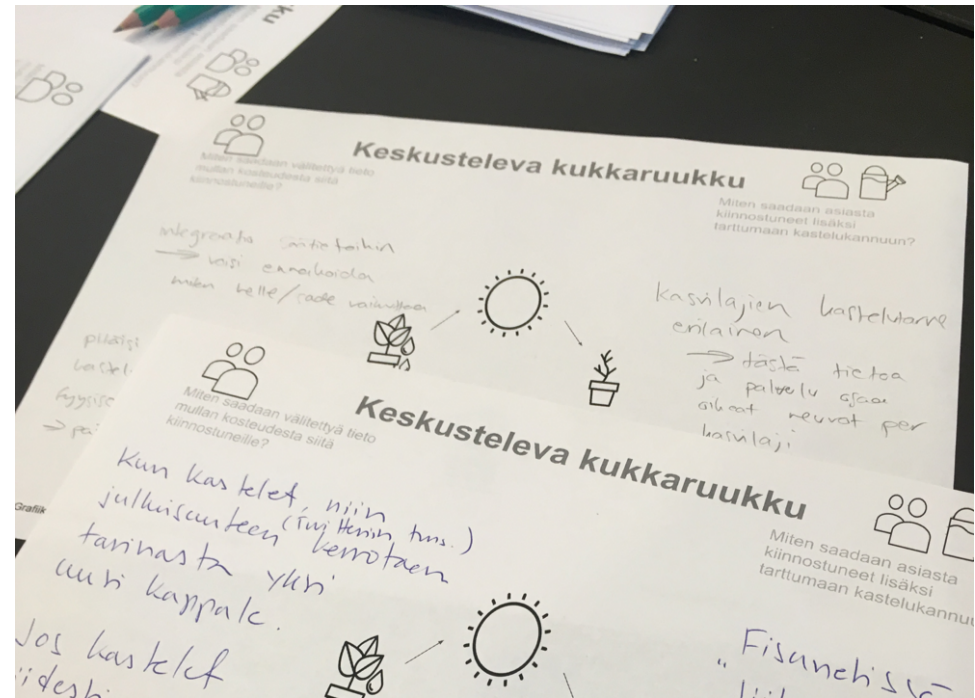 ku
Keskusteleva kukkaruukku
Miten saadaan välitettyä tieto
mullan kosteudesta siitä
kiinnostuneille?
Miten saadaan asiasta
kiinnostuneet lisäksi
tarttumaan kastelukannuun?
integraatio säätietoihin
→ voisi ennakoida
miten helle/sade vaikuttaa
kasvilajien kastelutarve
erilainen
→ tästä tietoa
ja palvelu osaa
oikeat neuvot per
kasvilaji
pitäisi
kastel
fyysise
Grafiik
Keskusteleva kukkaruukku
Miten saadaan välitettyä tieto
mullan kosteudesta siitä
kiinnostuneille?
Miten saadaan asiasta
kiinnostuneet lisäksi
tarttumaan kastelukannuu
Kun kastelet, niin
julkisuuteen (Twitteriin tms.)
kerrotaan
tarinasta yksi
uusi kappale.
Jos kastelet